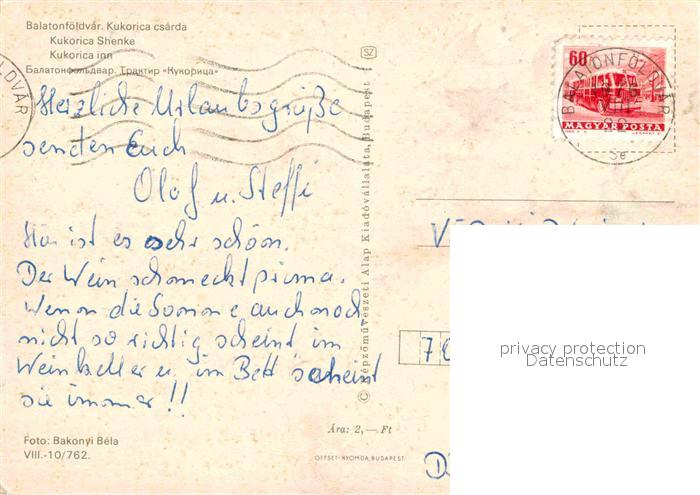 Balatonföldvár. Kukorica csárda
Kukorica Shenke
Kukorica inn
Балатонфольдвар. Трактир «Кукорица»
SZ
Herzliche Urlaubsgrüße
senden Euch
Olaf u. Steffi
Hier ist es sehr schön.
Der Wein schmeckt prima.
Wenn die Sonne auch noch
nicht so richtig scheint im
Weinkeller u. im Bett scheint
sie immer!!
Foto: Bakonyi Béla
VIII.-10/762.
© Képzőművészeti Alap Kiadóvállalata, Budapest
Ára: 2,— Ft
OFFSET-NYOMDA, BUDAPEST
60
MAGYAR POSTA
BALATONFÖLDVÁR
Se
LDVÁR
70
privacy protection
Datenschutz